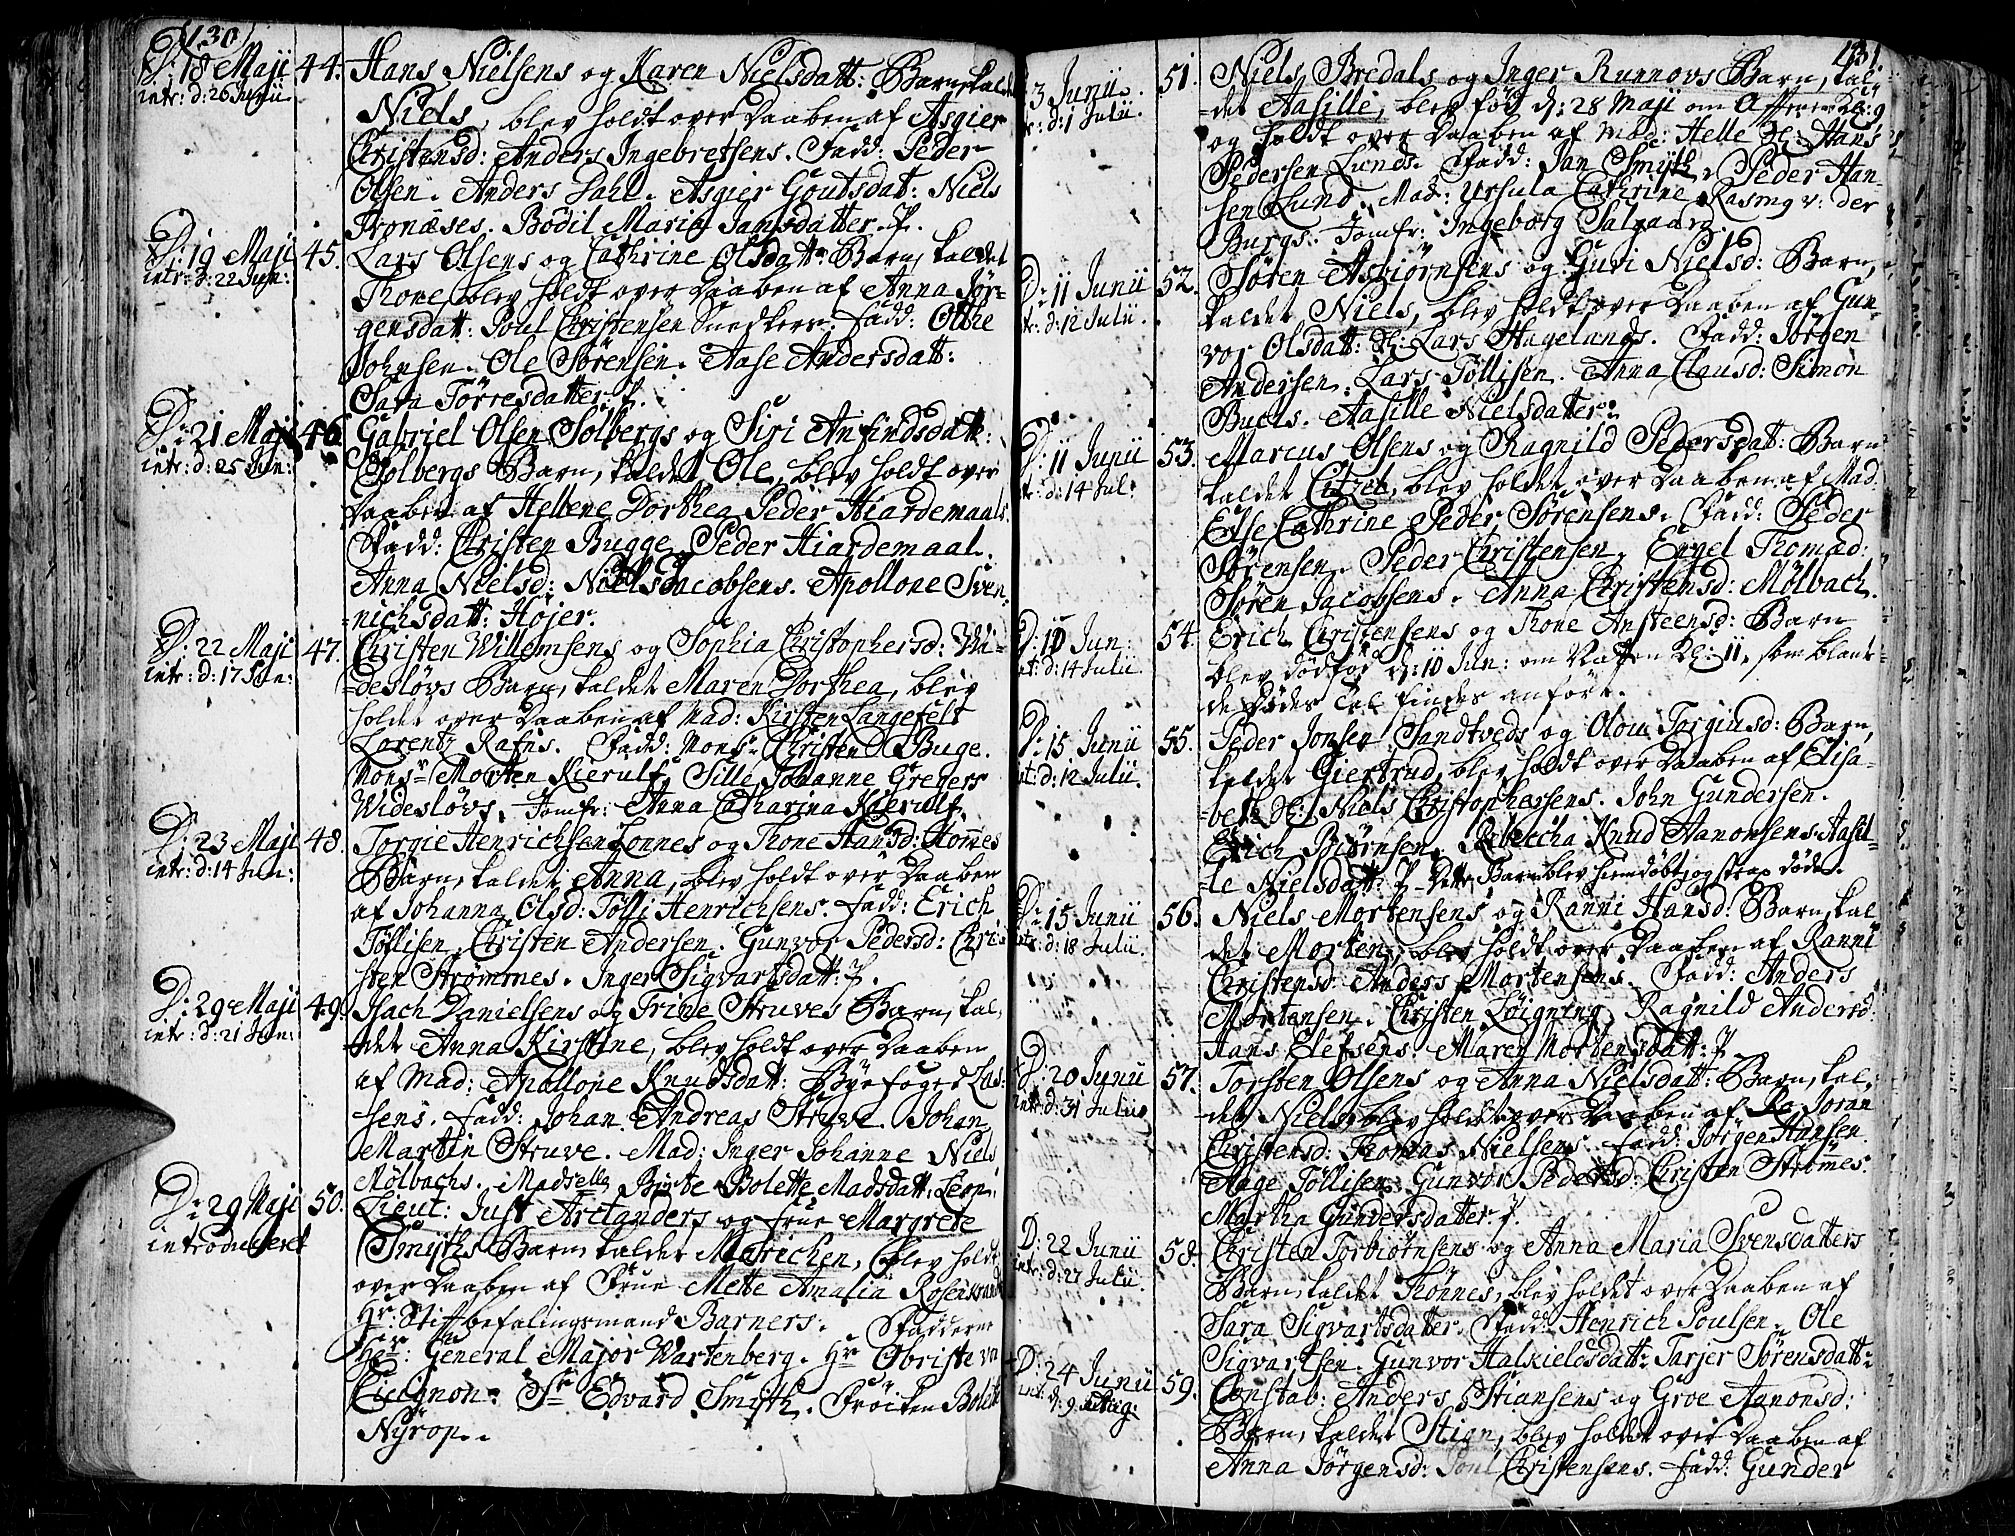 130
D: 18 Maji 44. Hans Nielsens og Karen Nielsdatt: Barn, kaldet
intr: d: 26 Junii. Niels, blev holdt over Daaben af Asgier
Christensd: Anders Ingebretsens. Fadd: Peder
Olsen. Anders Dahl. Asgier Goutsdat: Niels
Tronæses. Bodil Maria Jansdatter. P.
D: 19 Maji 45. Lars Olsens og Cathrine Olsdatt: Barn, kaldet
intr: d: 22 Jun: Thone blev holdt over Daaben af Anna Jør-
gensdatt: Poul Christensen Snedkers. Fadd: Othe
Johnsen. Ole Sørensen. Aase Andersdatt:
Sara Tørresdatter. P.
D: 21 Maji 46. Gabriel Olsen Solbergs og Siri Anfindsdatt:
intr: d: 25 Jun: Solbergs Barn, kaldet Ole, blev holdt over
Daaben af Hellene Dorthea Peder Hiardemaals.
Fadd: Christen Bugge. Peder Hiardemaal.
Anna Nielsd: Niels Jacobsens. Apollone Sven-
nichsdatt: Høyer.
D: 22 Maji 47. Christen Willemsens og Sophia Christophersd: Wi-
intr: d: 17 Jun: =desløvs Barn, kaldet Maren Dorthea, blev
holdet over Daaben af Mad: Kirsten Langefelt
Lorentz Rafns. Fadd: Mons: Christen Buge.
Monsr Morten Kierulf. Sille Johanne Gregers
Widesløvs. Jomfr: Anna Catharina Kierulf.
D: 23 Maji 48. Torgie Henrichsen Lonnes og Thone Hansd: Hommes
intr: d: 14 Jun: Barn, kaldet Anna, blev holdt over Daaben
af Johanna Olsd: Tølli Henrichsens. Fadd: Erich
Tøllisen. Christen Andersen. Gunvor Pedersd: Chri-
sten Strømmes. Inger Sigvartsdatt: P.
D: 29 Maji 49. Isach Danielsens og Trine Struves Barn, kal-
intr: d: 21 Jun: det Anna Kirstine, blev holdt over Daaben
af Mad: Apollone Knudsdatt: Byefoged Las-
sens. Fadd: Johan Andreas Struve. Johan
Martin Struve. Mad: Inger Johanne Niels
Mølbachs. Madselle Byrte Bolette Madsdatt: Leop.
D: 29 Maji 50. Lieut: Just Arctanders og Frue Margrete
introduceret Smyths Barn, kaldet Marichen, blev holdt
over Daaben af Frue Mette Amalia Rosenkrands
Hr: Stiftbefalingsmand Barners. Fadderne
Her: General Major Wartenberg. Hr Obriste v.
Cicignon. Sr Edvard Smith. Frøiken Bolette
Nyrop.
131.
3 Junii. 51. Niels Bredals og Inger Runnovs Barn, kal-
intr: d: 1 Julii. =det Aasille, blev fød d: 28 Maji om Aftenen Kl: 9
og holdt over Daaben af Mad: Helle Sl: Hans
Pedersen Lunds. Fadd: Jan Smith. Peder Han-
sen Lund. Mad: Ursula Cathrine Rasmg v: der
Burgs. Jomfr: Ingeborg Salgaard.
D: 11 Junii 52. Søren Asbiørnsens og Guri Nielsd: Barn,
intr: d: 12 Julii. kaldet Niels, blev holdt over Daaben af Gun-
vor Olsdatt: Sl: Lars Hagelunds. Fadd: Jørgen
Andersen. Lars Tøllisen. Anna Clausd: Simon
Buels. Aasille Nielsdatter.
D: 11 Junii 53. Marcus Olsens og Ragnild Pedersdatt: Barn
intr: d: 14 Jul: kaldet Citzel, blev holdet over Daaben af Mad.
Else Cathrine Peder Sørensens. Fadd: Peder
Sørensen. Peder Christensen. Engel Thomad:
Søren Jacobsens. Anna Christensd: Mølbach.
D: 10 Jun: 54. Erich Christensens og Thone Ansteensd: Barn
intr: d: 14 Julii. blev dødfød d: 10 Jun: om Natten Kl: 11, som blant
de Dødes Tal findes anført.
D: 15 Junii 55. Peder Jonsen Sandtveds og Olou Torgiusd: Barn,
int: d: 12 Julii. kaldet Giertrud, blev holdt over Daaben af Elisa-
=beth Sl: Niels Christophersens. John Gundersen.
Erich Biørnsen. Rebeccha Knud Aanonsens. Aasil-
=le Nielsdatt: P. Dette Barn blev hiemdøbt, og strax døde.
D: 15 Junii 56. Niels Mortensens og Ranni Hansd: Barn, kal-
intr: d: 18 Julii. det Morten, blev holdt over Daaben af Ranni
Christensd: Anders Mortensens. Fadd: Anders
Mortensen. Christen Løigning. Ragnild Andersd:
Hans Elefsens. Maren Mortensdatt: P.
D: 20 Junii 57. Torsten Olsens og Anna Nielsdatt: Barn, kal-
intr: d: 31 Julii det Niels, blev holdt over Daaben af Joran
Christensd: Thomas Nielsens. Fadd: Jørgen Hansen.
Aage Tøllisen. Gunvor Pedersd: Christen Strømmes.
Martha Gunversdatter. P.
D: 22 Junii 58. Christen Torbiørnsens og Anna Maria Svensdatters
intr: d: 27 Julii. Barn, kaldet Thønnes, blev holdet over Daaben af
Sara Sigvartsdatter. Fadd: Henrich Poulsen. Ole
Sigvartsen. Gunvor Halkieldsdatt: Tarjer Sørensdatt:
D: 24 Junii 59. Constab: Anders Stiansens og Groe Aanonsd:
int: d: 9 Aug: Barn, kaldet Stian, blev holdt over Daaben af
Anna Jørgensd: Poul Christensens. Fadd: Gunder